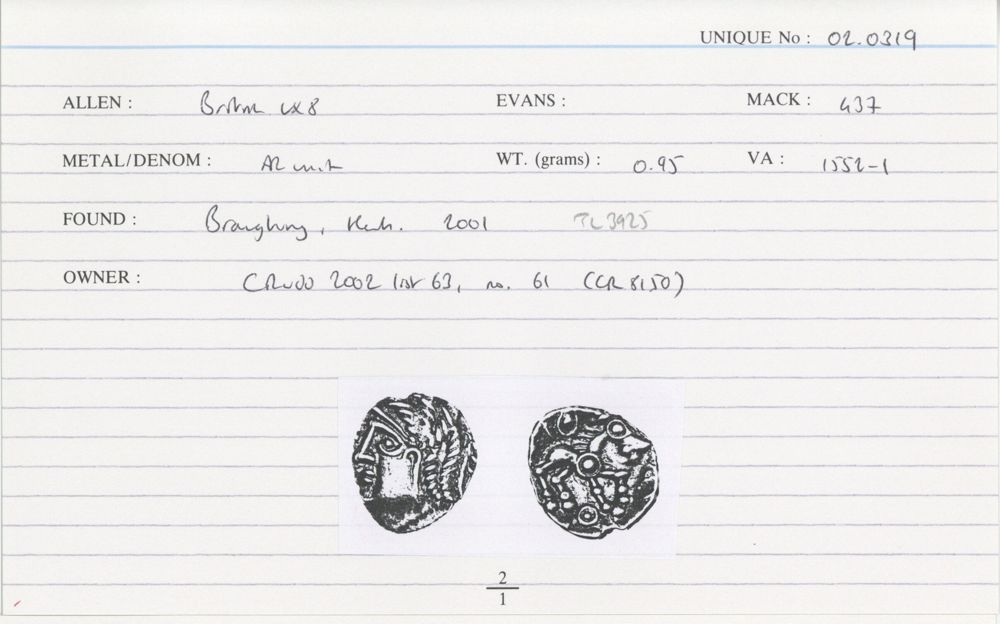 UNIQUE No : 02.0319
ALLEN : British LX8 EVANS : MACK : 437
METAL/DENOM : AR unit WT. (grams) : 0.95 VA : 1552-1
FOUND : Braughing, Herts. 2001 TL 3925
OWNER : CRudd 2002 list 63, no. 61 (CR 8150)
2
1